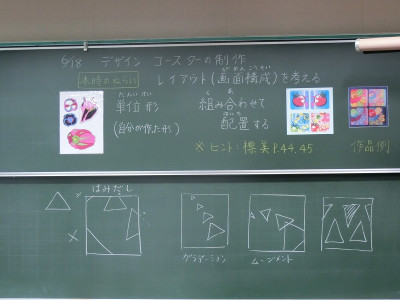 §18 デザイン コースターの制作
本時のねらい レイアウト(画面構成)を考える
がめんこうせい
たんいけい
単位形
(自分が作った形)
くあ
組み合わせて
はいち
配置する
※ヒント:標美P.44.45
作品例
はみだし
×
グラデーション
ムーブメント